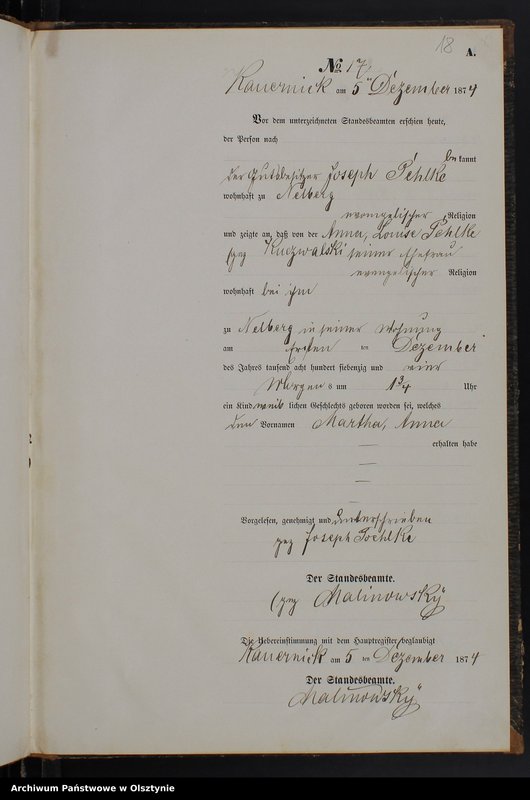 18
A.
No 17
Kauernick am 5ten Dezember 1874
Vor dem unterzeichneten Standesbeamten erschien heute,
der Person nach
be kannt
der Gutsbesitzer Joseph Pehlke
wohnhaft zu Nelberg
evangelischer Religion
und zeigte an, daß von der Anna, Louise Pehlke
geg Kuczwalski seiner Ehefrau
evangelischer Religion
wohnhaft bei ihm
zu Nelberg in seiner Wohnung
am Ersten ten Dezember
des Jahres tausend acht hundert siebenzig und vier
Morgens um 1 3/4 Uhr
ein Kind weib lichen Geschlechts geboren worden sei, welches
den Vornamen Martha, Anna
erhalten habe
Vorgelesen, genehmigt und unterschrieben
gez Joseph Poehlke
Der Standesbeamte.
(gez Malinowsky
Die Uebereinstimmung mit dem Hauptregister beglaubigt
Kauernick am 5 ten Dezember 1874
Der Standesbeamte.
Malinowsky
Archiwum Państwowe w Olsztynie